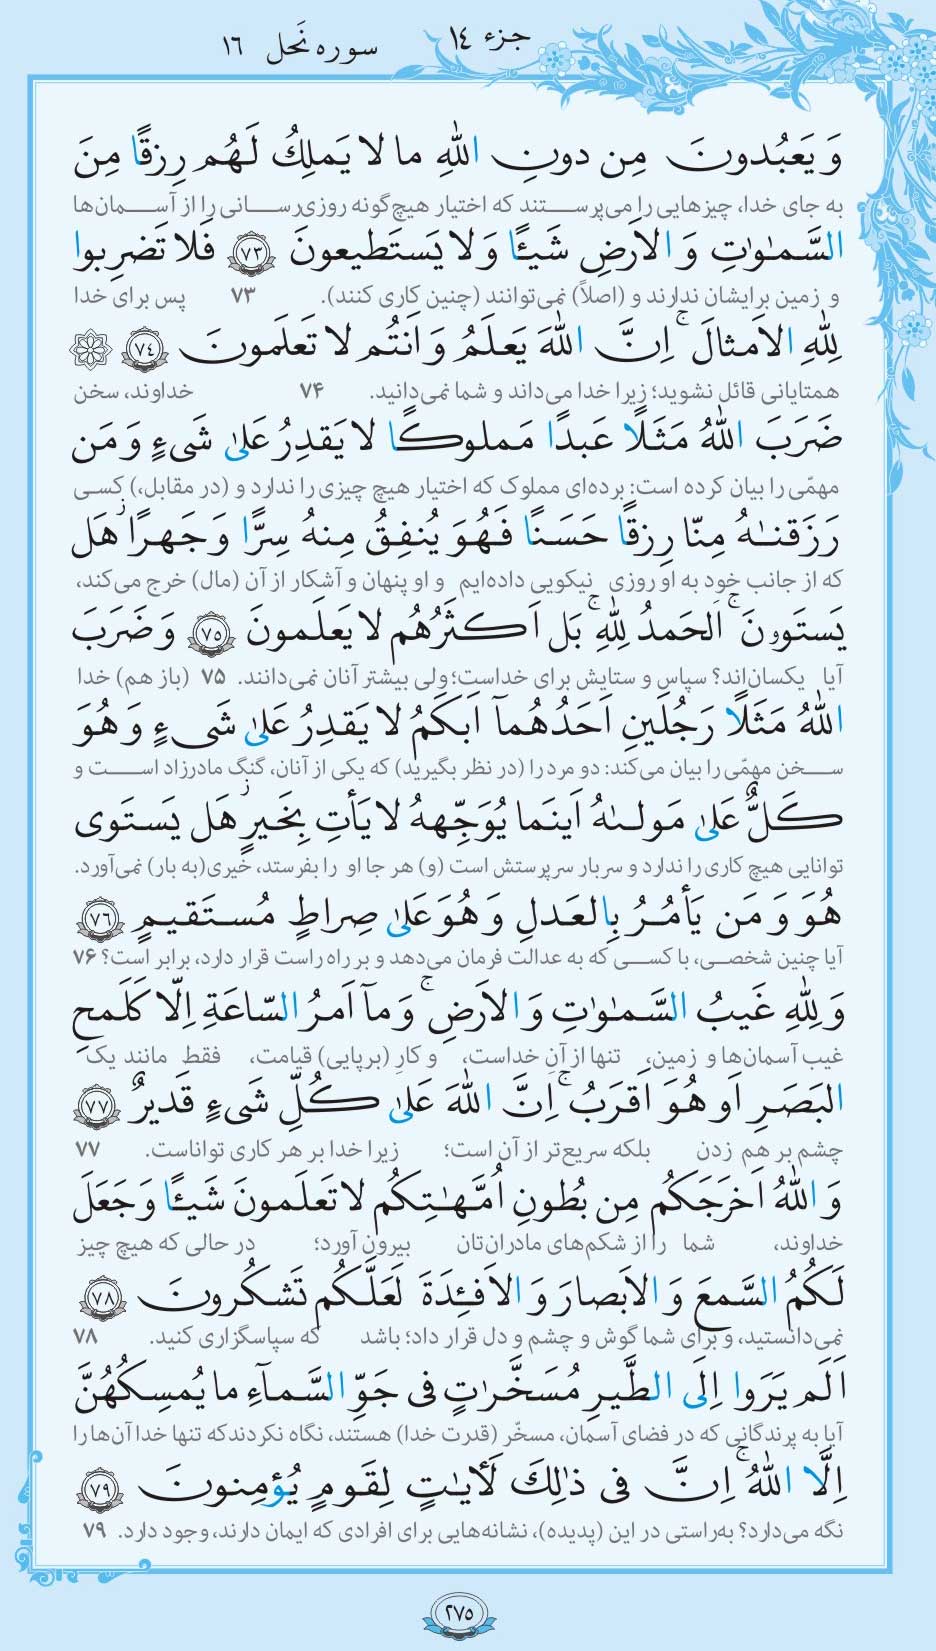 جزء ۱۴
سوره نَحل ۱۶
وَ يَعبُدونَ مِن دونِ اللّٰهِ ما لا يَملِكُ لَهُم رِزقًا مِنَ
به جای خدا، چیزهایی را می‌پرستند که اختیار هیچ‌گونه روزی‌رسانی را از آسمان‌ها
السَّمٰوٰتِ وَ الاَرضِ شَيـًٔا وَ لا يَستَطيعونَ ﴿۷۳﴾ فَلا تَضرِبوا
و زمین برایشان ندارند و (اصلاً) نمی‌توانند (چنین کاری کنند). ۷۳ پس برای خدا
لِلّٰهِ الاَمثالَ ۚ اِنَّ اللّٰهَ يَعلَمُ وَ اَنتُم لا تَعلَمونَ ﴿۷۴﴾
همتایانی قائل نشوید؛ زیرا خدا می‌داند و شما نمی‌دانید. ۷۴ خداوند، سخن
ضَرَبَ اللّٰهُ مَثَلًا عَبدًا مَملوكًا لا يَقدِرُ عَلىٰ شَىءٍ وَ مَن
مهمّی را بیان کرده است: برده‌ای مملوک که اختیار هیچ چیزی را ندارد و (در مقابل،) کسی
رَزَقنٰهُ مِنّا رِزقًا حَسَنًا فَهُوَ يُنفِقُ مِنهُ سِرًّا وَ جَهرًا ۖ هَل
که از جانب خود به او روزی نیکویی داده‌ایم و او پنهان و آشکار از آن (مال) خرج می‌کند،
يَستَوۥنَ ۚ اَلحَمدُ لِلّٰهِ ۚ بَل اَكثَرُهُم لا يَعلَمونَ ﴿۷۵﴾ وَ ضَرَبَ
آیا یکسان‌اند؟ سپاس و ستایش برای خداست؛ ولی بیشتر آنان نمی‌دانند. ۷۵ (باز هم) خدا
اللّٰهُ مَثَلًا رَجُلَينِ اَحَدُهُمآ اَبكَمُ لا يَقدِرُ عَلىٰ شَىءٍ وَ هُوَ
سخن مهمّی را بیان می‌کند: دو مرد را (در نظر بگیرید) که یکی از آنان، گنگ مادرزاد است و
كَلٌّ عَلىٰ مَولىٰهُ اَينَما يُوَجِّههُ لا يَأتِ بِخَيرٍ ۖ هَل يَستَوى
توانایی هیچ کاری را ندارد و سربار سرپرستش است (و) هر جا او را بفرستد، خیری(به بار) نمی‌آورد.
هُوَ وَ مَن يَأمُرُ بِالعَدلِ وَ هُوَ عَلىٰ صِراطٍ مُستَقيمٍ ﴿۷۶﴾
آیا چنین شخصی، با کسی که به عدالت فرمان می‌دهد و بر راه راست قرار دارد، برابر است؟ ۷۶
وَ لِلّٰهِ غَيبُ السَّمٰوٰتِ وَ الاَرضِ ۚ وَ مآ اَمرُ السّاعَةِ اِلّا كَلَمحِ
غیب آسمان‌ها و زمین، تنها از آنِ خداست، و کارِ (برپایی) قیامت، فقط مانند یک
البَصَرِ اَو هُوَ اَقرَبُ ۚ اِنَّ اللّٰهَ عَلىٰ كُلِّ شَىءٍ قَديرٌ ﴿۷۷﴾
چشم بر هم زدن بلکه سریع‌تر از آن است؛ زیرا خدا بر هر کاری تواناست. ۷۷
وَ اللّٰهُ اَخرَجَكُم مِن بُطونِ اُمَّهٰتِكُم لا تَعلَمونَ شَيـًٔا وَ جَعَلَ
خداوند، شما را از شکم‌های مادران‌تان بیرون آورد؛ در حالی که هیچ چیز
لَكُمُ السَّمعَ وَ الاَبصارَ وَ الاَفـِٔدَةَ لَعَلَّكُم تَشكُرونَ ﴿۷۸﴾
نمی‌دانستید، و برای شما گوش و چشم و دل قرار داد؛ باشد که سپاسگزاری کنید. ۷۸
اَلَم يَرَوا اِلَى الطَّيرِ مُسَخَّرٰتٍ فى جَوِّ السَّمآءِ ما يُمسِكُهُنَّ
آیا به پرندگانی که در فضای آسمان، مسخّر (قدرت خدا) هستند، نگاه نکردند که تنها خدا آن‌ها را
اِلَّا اللّٰهُ ۚ اِنَّ فى ذٰلِكَ لَـٔايٰتٍ لِقَومٍ يُؤمِنونَ ﴿۷۹﴾
نگه می‌دارد؟ به‌راستی در این (پدیده)، نشانه‌هایی برای افرادی که ایمان دارند، وجود دارد. ۷۹
۲۷۵